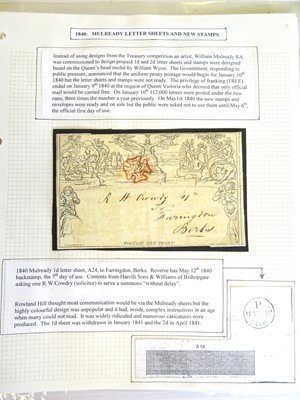 1840: MULREADY LETTER SHEETS AND NEW STAMPS
Instead of using designs from the Treasury competition an artist, William Mulready RA
was commissioned to design prepaid 1d and 2d letter sheets and stamps were designed
based on the Queen's head medal by William Wyon. The Government, responding to
public pressure, announced that the uniform penny postage would begin for January 10th
1840 but the letter sheets and stamps were not ready. The privilege of franking (FREE)
ended on January 9th 1840 at the request of Queen Victoria who decreed that only official
mail would be carried free. On January 10th 112,000 letters were posted under the new
rates, three times the number a year previously. On May1st 1840 the new stamps and
envelopes were ready and on sale but the public were asked not to use them until May 6th,
the official first day of use.
R W Crowdy
Farringdon
Berks
POSTAGE ONE PENNY
1840 Mulready 1d letter sheet, A24, to Farringdon, Berks. Reverse has May 12th 1840
backstamp, the 7th day of use. Contents from Harris Sons & Williams of Bishopgate
asking one R.W.Cowdry (solicitor) to serve a summons "without delay".
Rowland Hill thought most communication would be via the Mulready sheets but the
highly coloured design was unpopular and it had, inside, complex instructions in an age
when many could not read. It was widely ridiculed and numerous caricatures were
produced. The 1d sheet was withdrawn in January 1841 and the 2d in April 1841.
A24